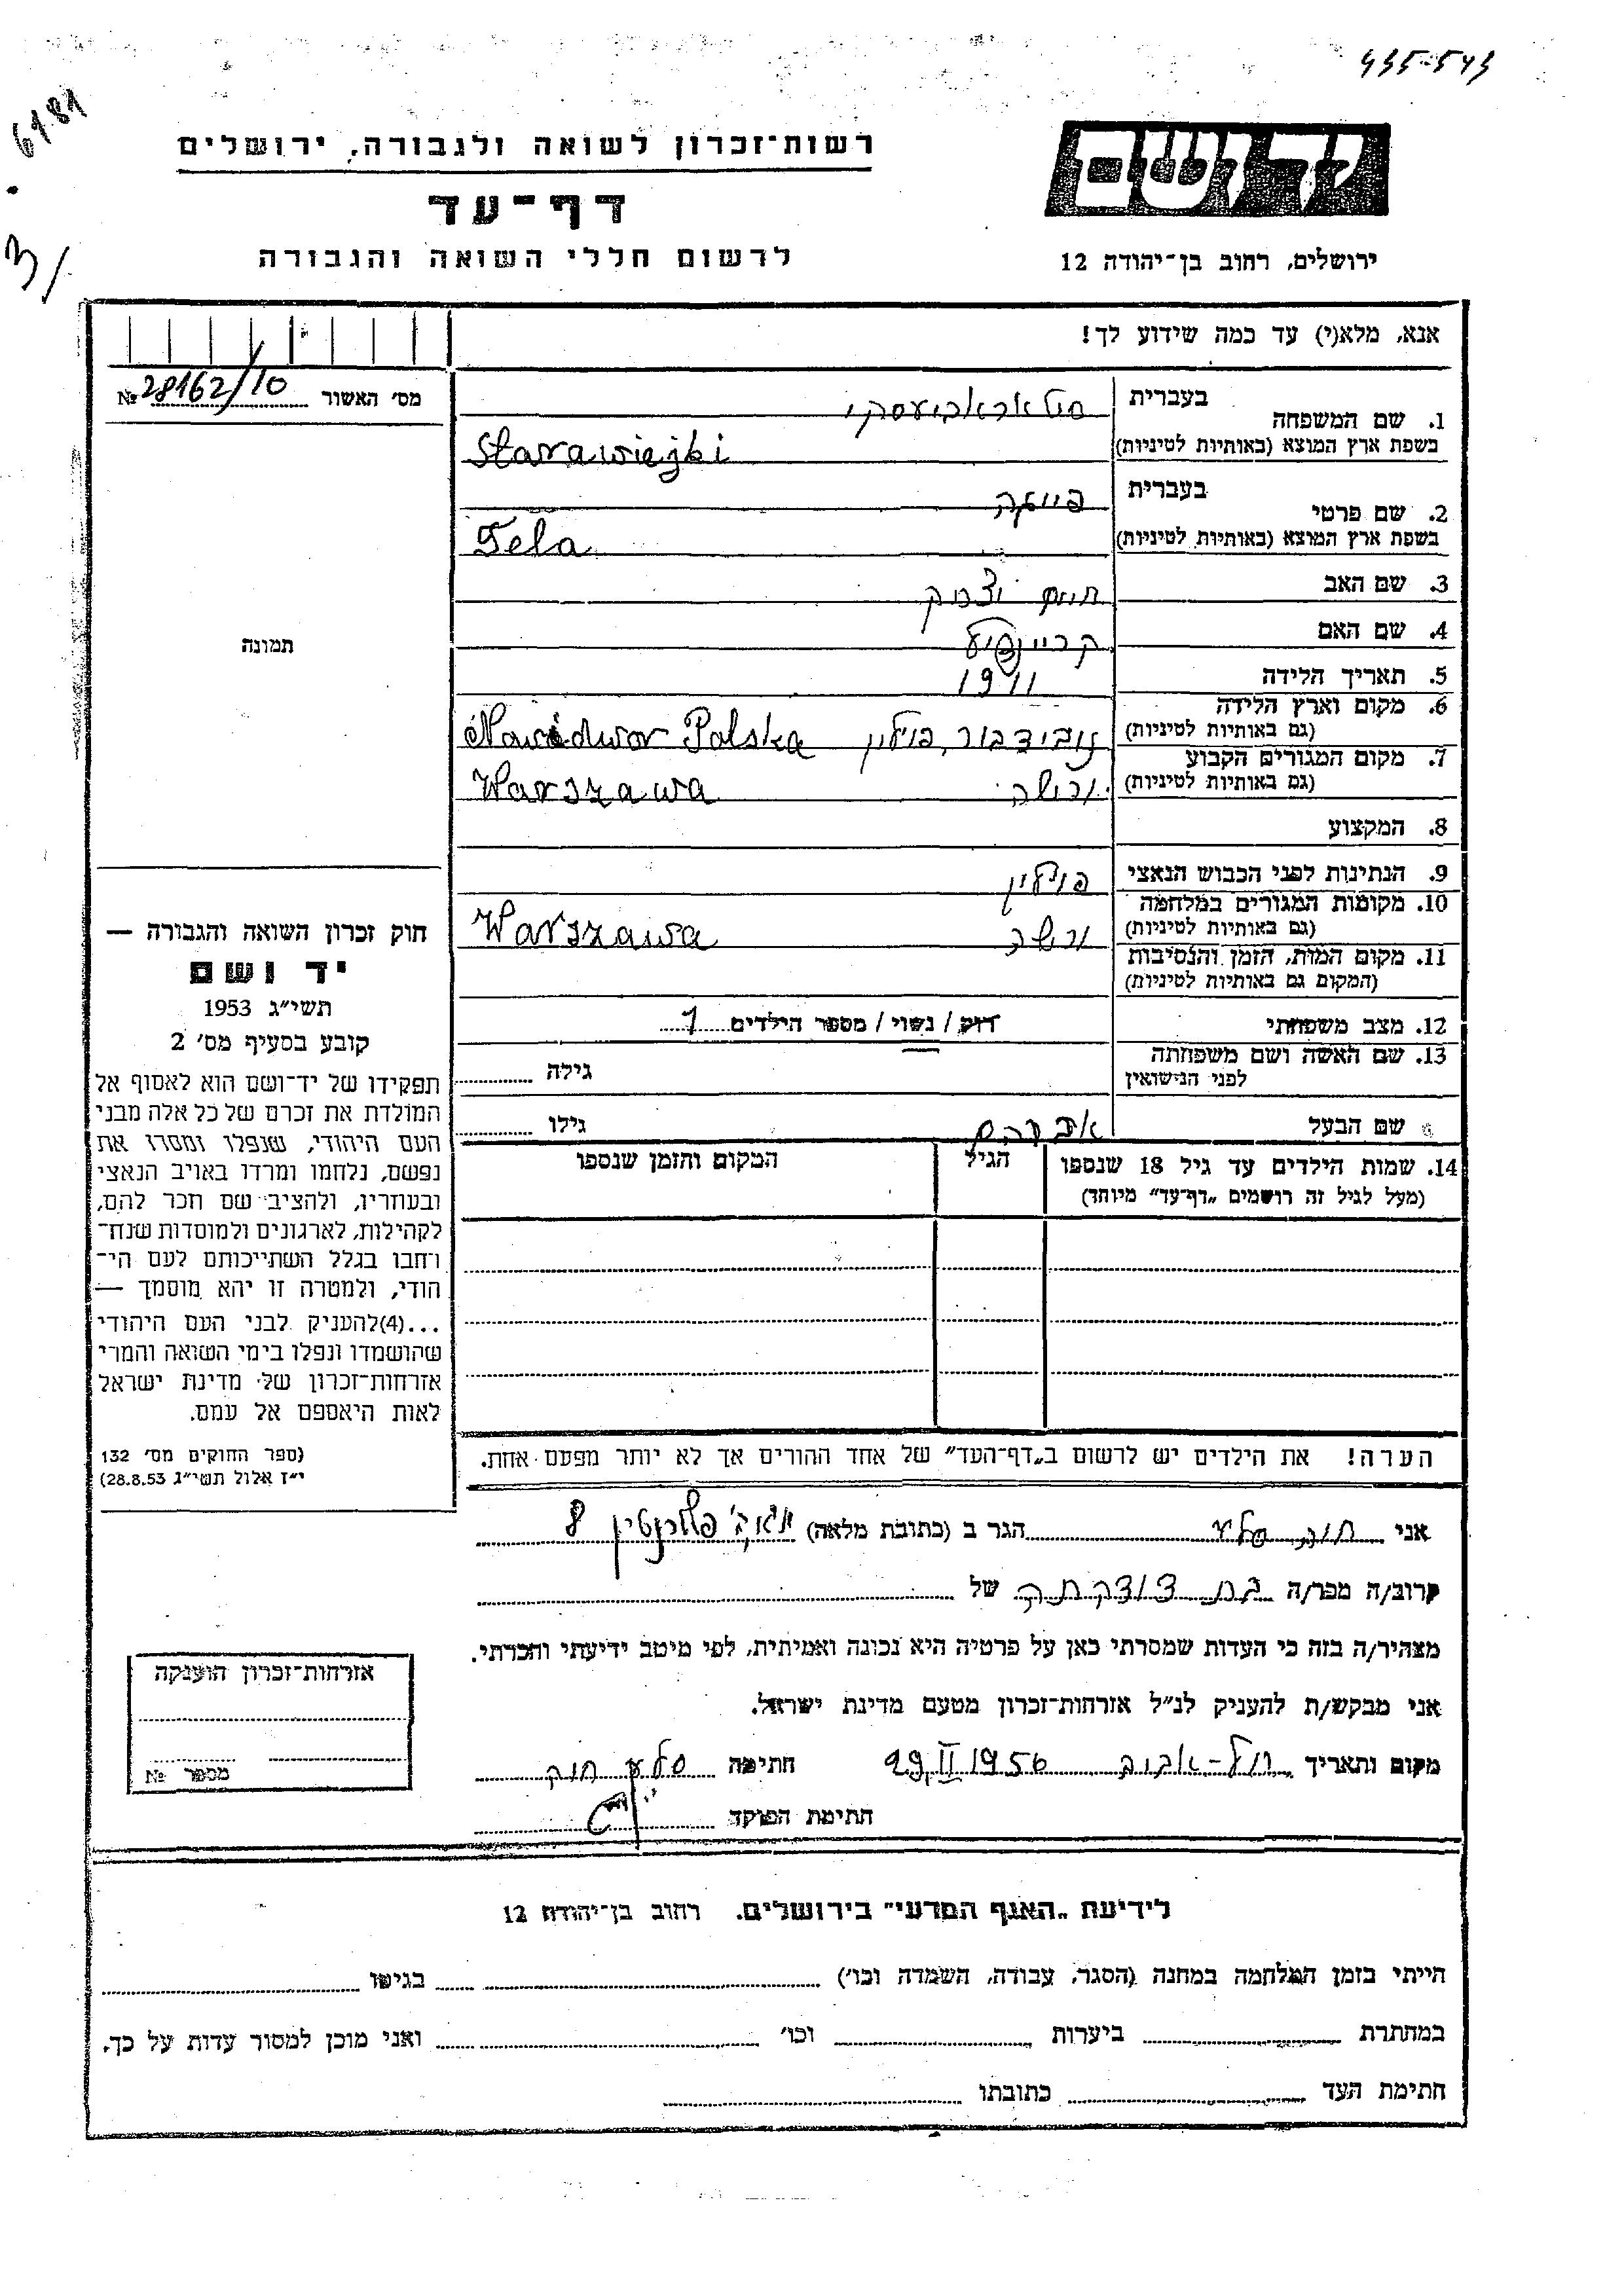 435-543
6181
רשות־זכרון לשואה ולגבורה, ירושלים
דף־עד
לדשום חללי השואה והגבורה
יד ושם
ירושלים, רחוב בן־יהודה 12
אנא, מלא(י) עד כמה שידוע לך!
מס׳ האשור № 28162/10
תמונה
1. שם המשפחה
בעברית
בשפת ארץ המוצא (באותיות לטיניות) Starawiejski
2. שם פרטי
בעברית
בשפת ארץ המוצא (באותיות לטיניות) Fela
3. שם האב חיים יצחק
4. שם האם
5. תאריך הלידה 1911
6. מקום וארץ הלידה
(גם באותיות לטיניות) נובידבור, פולין Nowidwor Polska
7. מקום המגורים הקבוע
(גם באותיות לטיניות) ורשה Warszawa
8. המקצוע
9. הנתינות לפני הכבוש הנאצי פולין
10. מקומות המגורים במלחמה
(גם באותיות לטיניות) ורשה Warszawa
11. מקום המות, הזמן והנסיבות
(המקום גם באותיות לטיניות)
12. מצב משפחתי רוק / נשוי / מספר הילדים 1
13. שם האשה ושם משפחתה
לפני הנישואין
גילה
שם הבעל אברהם גילו
14. שמות הילדים עד גיל 18 שנספו
(מעל לגיל זה רושמים „דף־עד״ מיוחד)
הגיל
המקום והזמן שנספו
הערה! את הילדים יש לרשום ב„דף־העד״ של אחד ההורים אך לא יותר מפעם אחת.
חוק זכרון השואה והגבורה —
יד ושם
תשי״ג 1953
קובע בסעיף מס׳ 2
תפקידו של יד־ושם הוא לאסוף אל
המולדת את זכרם של כל אלה מבני
העם היהודי, שנפלו ומסרו את
נפשם, נלחמו ומרדו באויב הנאצי
ובעוזריו, ולהציב שם וזכר להם,
לקהילות, לארגונים ולמוסדות שנח־
רבו בגלל השתייכותם לעם הי־
הודי, ולמטרה זו יהא מוסמך —
...(4) להעניק לבני העם היהודי
שהושמדו ונפלו בימי השואה והמרי
אזרחות־זכרון של מדינת ישראל
לאות היאספם אל עמם.
(ספר החוקים מס׳ 132
י״ז אלול תשי״ג 28.8.53)
אני חוה סלע הגר ב (כתובת מלאה) פלורנטין 8
קרוב/ה מכר/ה של
מצהיר/ה בזה כי העדות שמסרתי כאן על פרטיה היא נכונה ואמיתית, לפי מיטב ידיעתי והכרתי.
אני מבקש/ת להעניק לנ״ל אזרחות־זכרון מטעם מדינת ישראל.
מקום ותאריך תל-אביב 29.II 1956 חתימה סלע חוה
חתימת הפוקד
אזרחות־זכרון הוענקה
מספר №
לידיעת „האגף המדעי״ בירושלים. רחוב בן־יהודה 12
הייתי בזמן המלחמה במחנה (הסגר, עבודה, השמדה וכו׳) בגיטו
במחתרת ביערות וכו׳ ואני מוכן למסור עדות על כך.
חתימת העד כתובתו